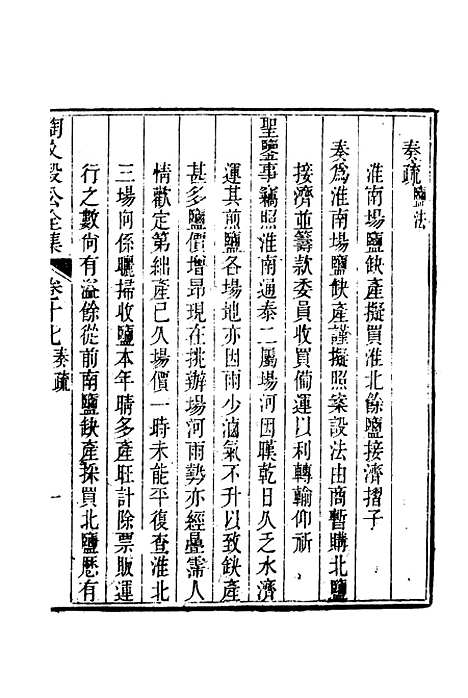 奏疏鹽法
淮南場鹽缺產擬買淮北餘鹽接濟摺子
奏爲淮南場鹽缺產謹擬照案設法由商暫購北鹽
接濟並籌款委員收買備運以利轉輸仰祈
聖鑒事竊照淮南通泰二屬場河因暵乾日久乏水濟
運其煎鹽各場地亦因雨少滷氣不升以致缺產
甚多鹽價增昂現在挑辦場河雨勢亦經疊霈人
情歡定第絀產已久場價一時未能平復查淮北
三場向係曬掃收鹽本年晴多產旺計除票販運
行之數尚有溢餘從前南鹽缺產採買北鹽歷有
陶文毅公全集 卷十七 奏疏 一